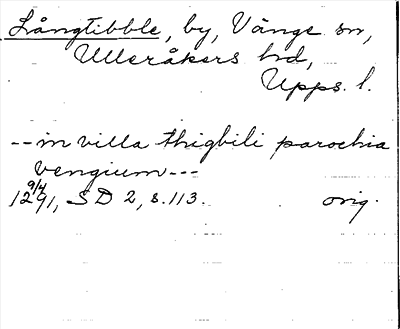 Långtibble, by, Vänge sn,
Ulleråkers hd,
Upps. l.
-- in villa thigbili parochia
vengium ---
9/4
1291, SD 2, s. 113. orig.